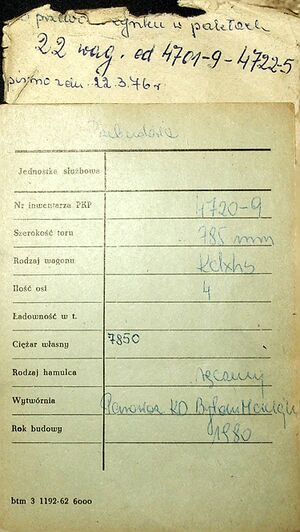 przewóz cynku w pakietach
22 wag. od 4701-9 - 4722-5
pismo z dn. 22.3.76 r
Jednostka służbowa
Nr inwentarza PKP 4720-9
Szerokość toru 785 mm
Rodzaj wagonu Kdxhs
Ilość osi 4
Ładowność w t.
Ciężar własny 7850
Rodzaj hamulca ręczny
Wytwórnia KO Bytom
Rok budowy 1980
btm 3 1192-62 6000